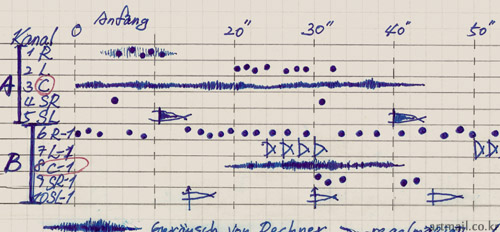 Anfang
Kanal 0 20" 30" 40" 50"
1 R
2 L
A 3 C
4 SR
5 SL
6 R-1
7 L-1
B 8 C-1
9 SR-1
10 SL-1
Geräusch von Rechner
artmail.co.kr